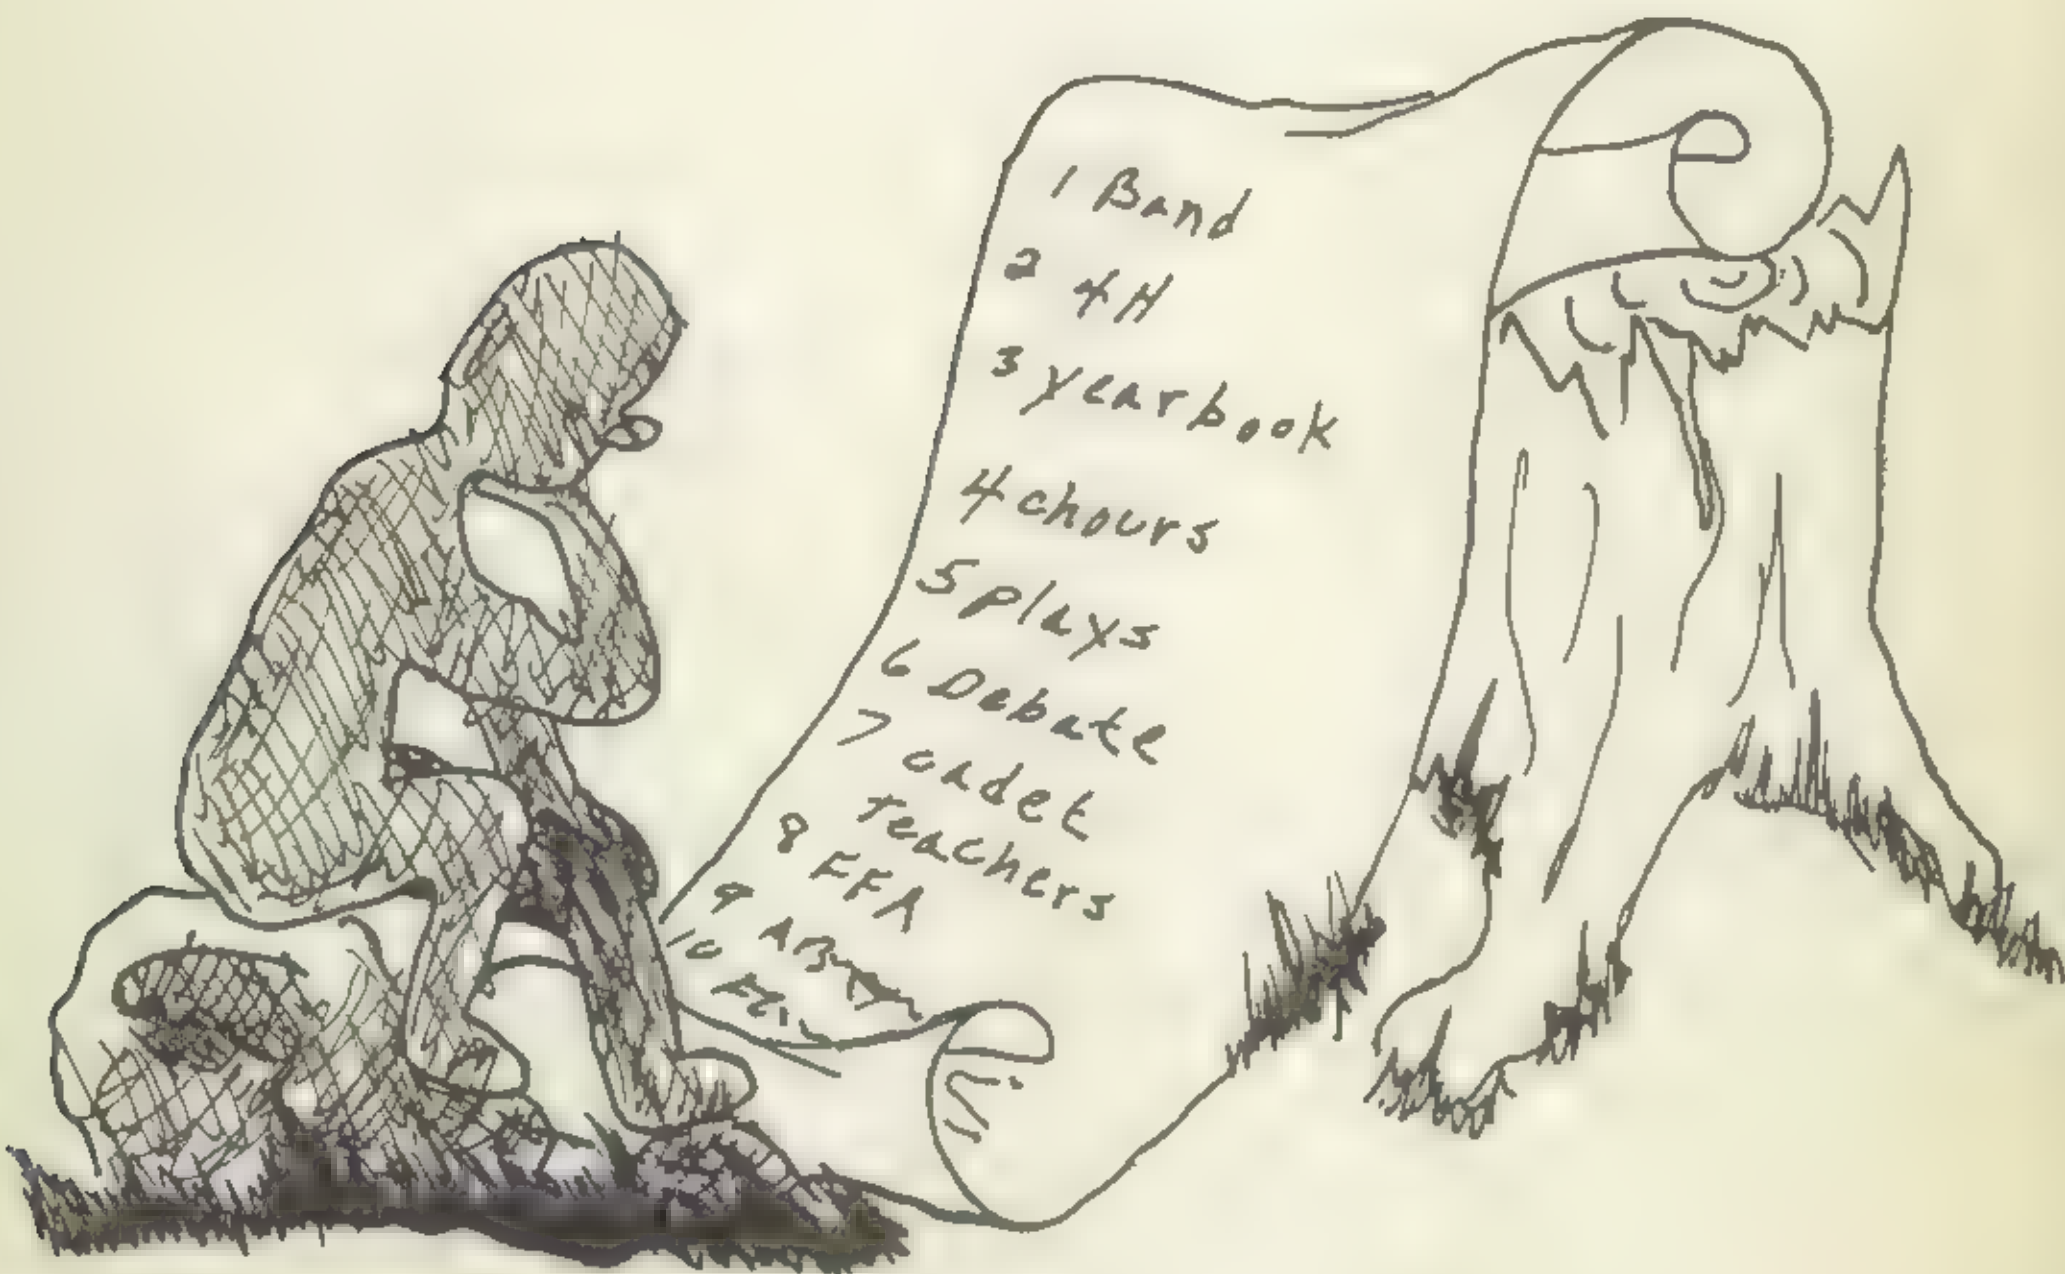 1 Band
2 4H
3 yearbook
4 chours
5 plays
6 Debate
7 cadet
Teachers
8 FFA
9
10